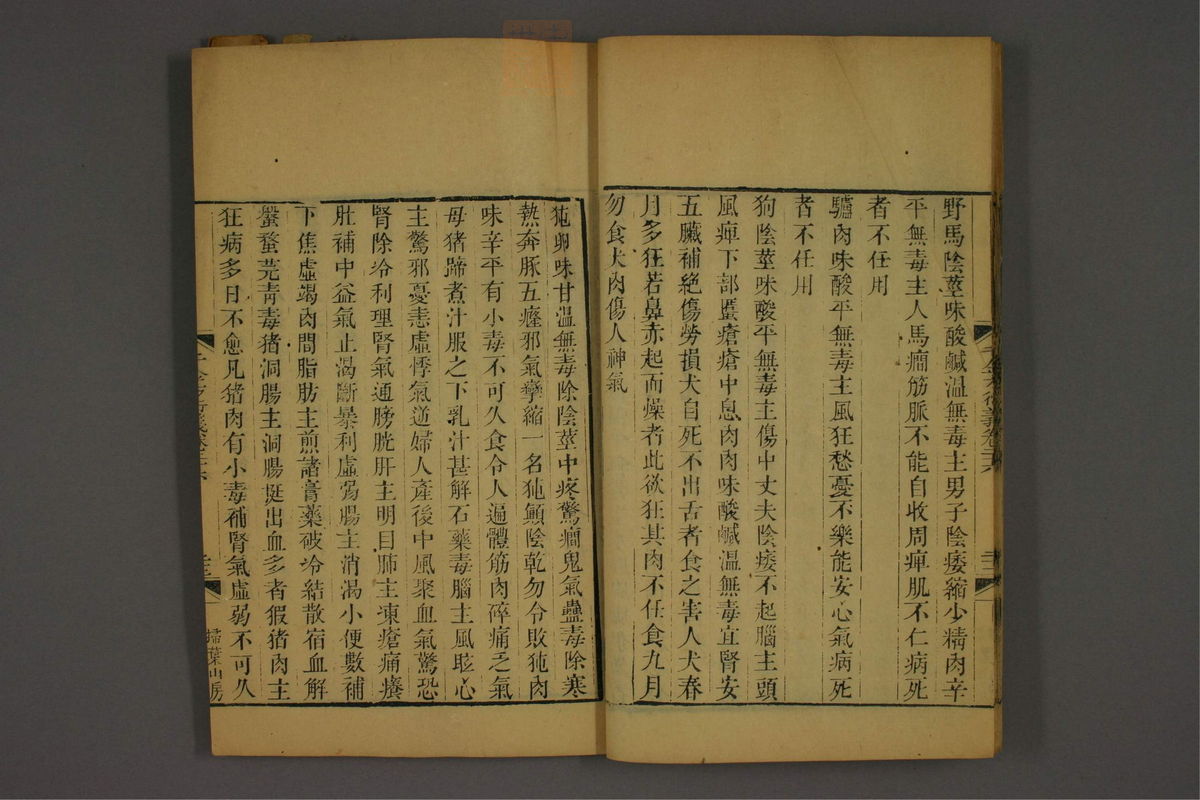 野馬陰莖味酸鹹溫無毒主男子陰痿縮少精肉辛
平無毒主人馬癇筋脈不能自收周痺肌不仁病死
者不任用
驢肉味酸平無毒主風狂愁憂不樂能安心氣病死
者不任用
狗陰莖味酸平無毒主傷中丈夫陰痿不起腦主頭
風痺下部䘌瘡瘡中息肉肉味酸鹹溫無毒宜腎安
五臟補絶傷勞損犬自死不出舌者食之害人犬春
月多狂若鼻赤起而燥者此欲狂其肉不任食九月
勿食犬肉傷人神氣
㹠卵味甘溫無毒除陰莖中疼驚癇鬼氣蠱毒除寒
熱奔豚五癃邪氣攣縮一名㹠顛陰乾勿令敗㹠肉
味辛平有小毒不可久食令人遍體筋肉碎痛乏氣
母猪蹄煮汁服之下乳汁甚解石藥毒腦主風眩心
主驚邪憂恚虛悸氣逆婦人產後中風聚血氣驚恐
腎除冷利理腎氣通膀胱肝主明目肺主凍瘡痛癢
肚補中益氣止渴斷暴利虛弱腸主消渴小便數補
下焦虛竭肉間脂肪主煎諸膏藥破冷結散宿血解
蟹蝥芫青毒猪洞腸主洞腸挺出血多者猳猪肉主
狂病多日不愈凡猪肉有小毒補腎氣虛弱不可久
千金方衍義卷二十六
掃葉山房